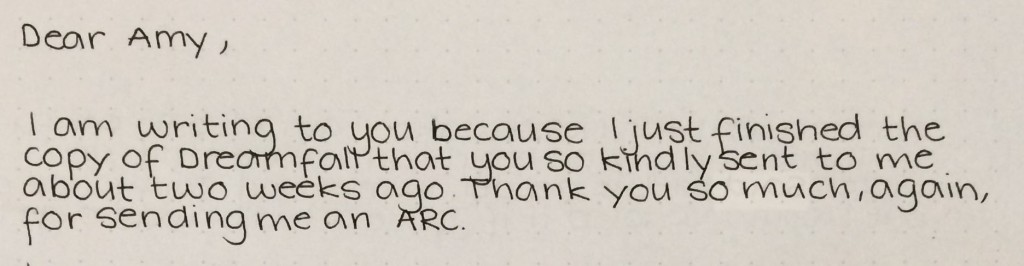 Dear Amy,
I am writing to you because I just finished the
copy of Dreamfall that you so kindly sent to me
about two weeks ago. Thank you so much, again,
for sending me an ARC.